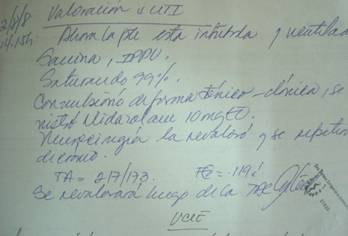 Valoración x UTI
14:15h
Ahora la pte esta intubada y ventilada
Savina, IPPV.
Saturando 99%.
Convulsionó de forma tónico-clónica, se
Midazolam 10mg EV.
Neurocirugía la revaloró y se repetirá
TA = 217/173. FC = 119x'
Se revalorará luego de la TAC
UCIE